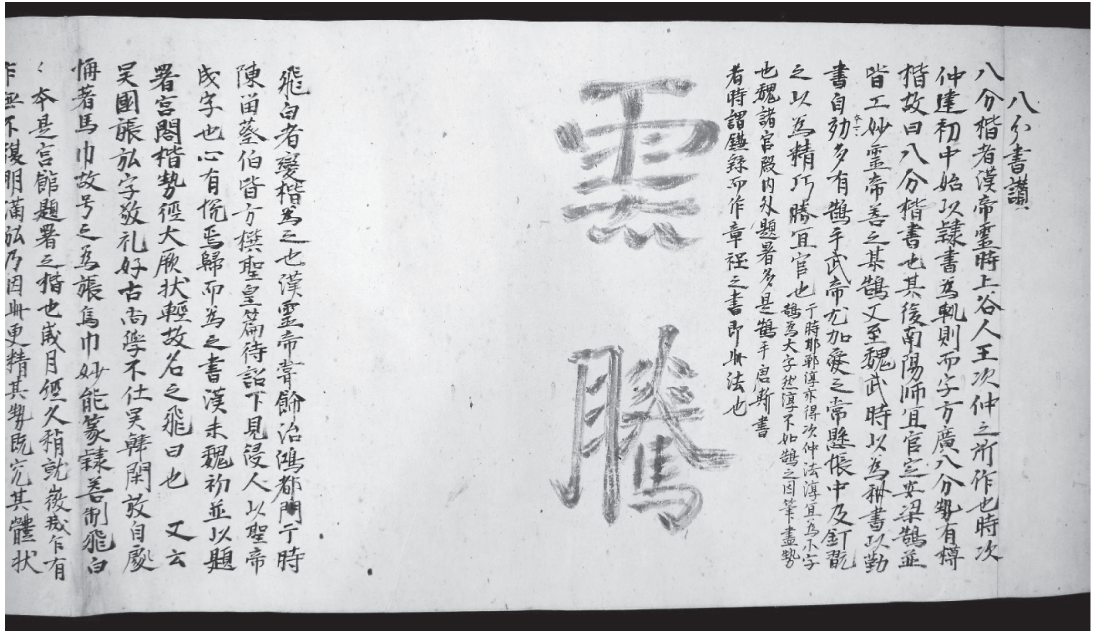 八分書讃
八分楷者漢帝靈時上谷人王次仲之所作也時次
仲達初中始以隸書為軌則而字方廣八分勢有
楷故曰八分楷書也其後南陽師宜官安梁鵠並
皆工妙靈帝善之其鵠又至魏武時以為秘書以勤
書自効多有鵠手武帝尤加愛之常懸帳中及釘
之以為精巧勝宜官也于時邯鄲淳亦得次仲法淳宜為小字
鵠為大字然淳不如鵠之因筆盡勢
也魏諸官殿内外題署多是鵠手
者時謂而作章程之書即此法也
雲
騰
飛白者變楷為之也漢靈帝常飾治鴻都門于時
陳留蔡伯皆方撰聖皇篇待詔下見役人以聖帝
成字也心有悅焉歸而為之書漢末魏初並以題
署宮閣楷勢徑大厥状輕故名之飛白也 又云
吴國張弘字敬礼好古尚學不仕吴韓閑放自
著馬巾故号之為張馬巾妙能篆隸善飛白
本是宮館題署之楷也歳月經久稍就微乍有
乍無不復明滿弘乃因此更精其勢既究其體状